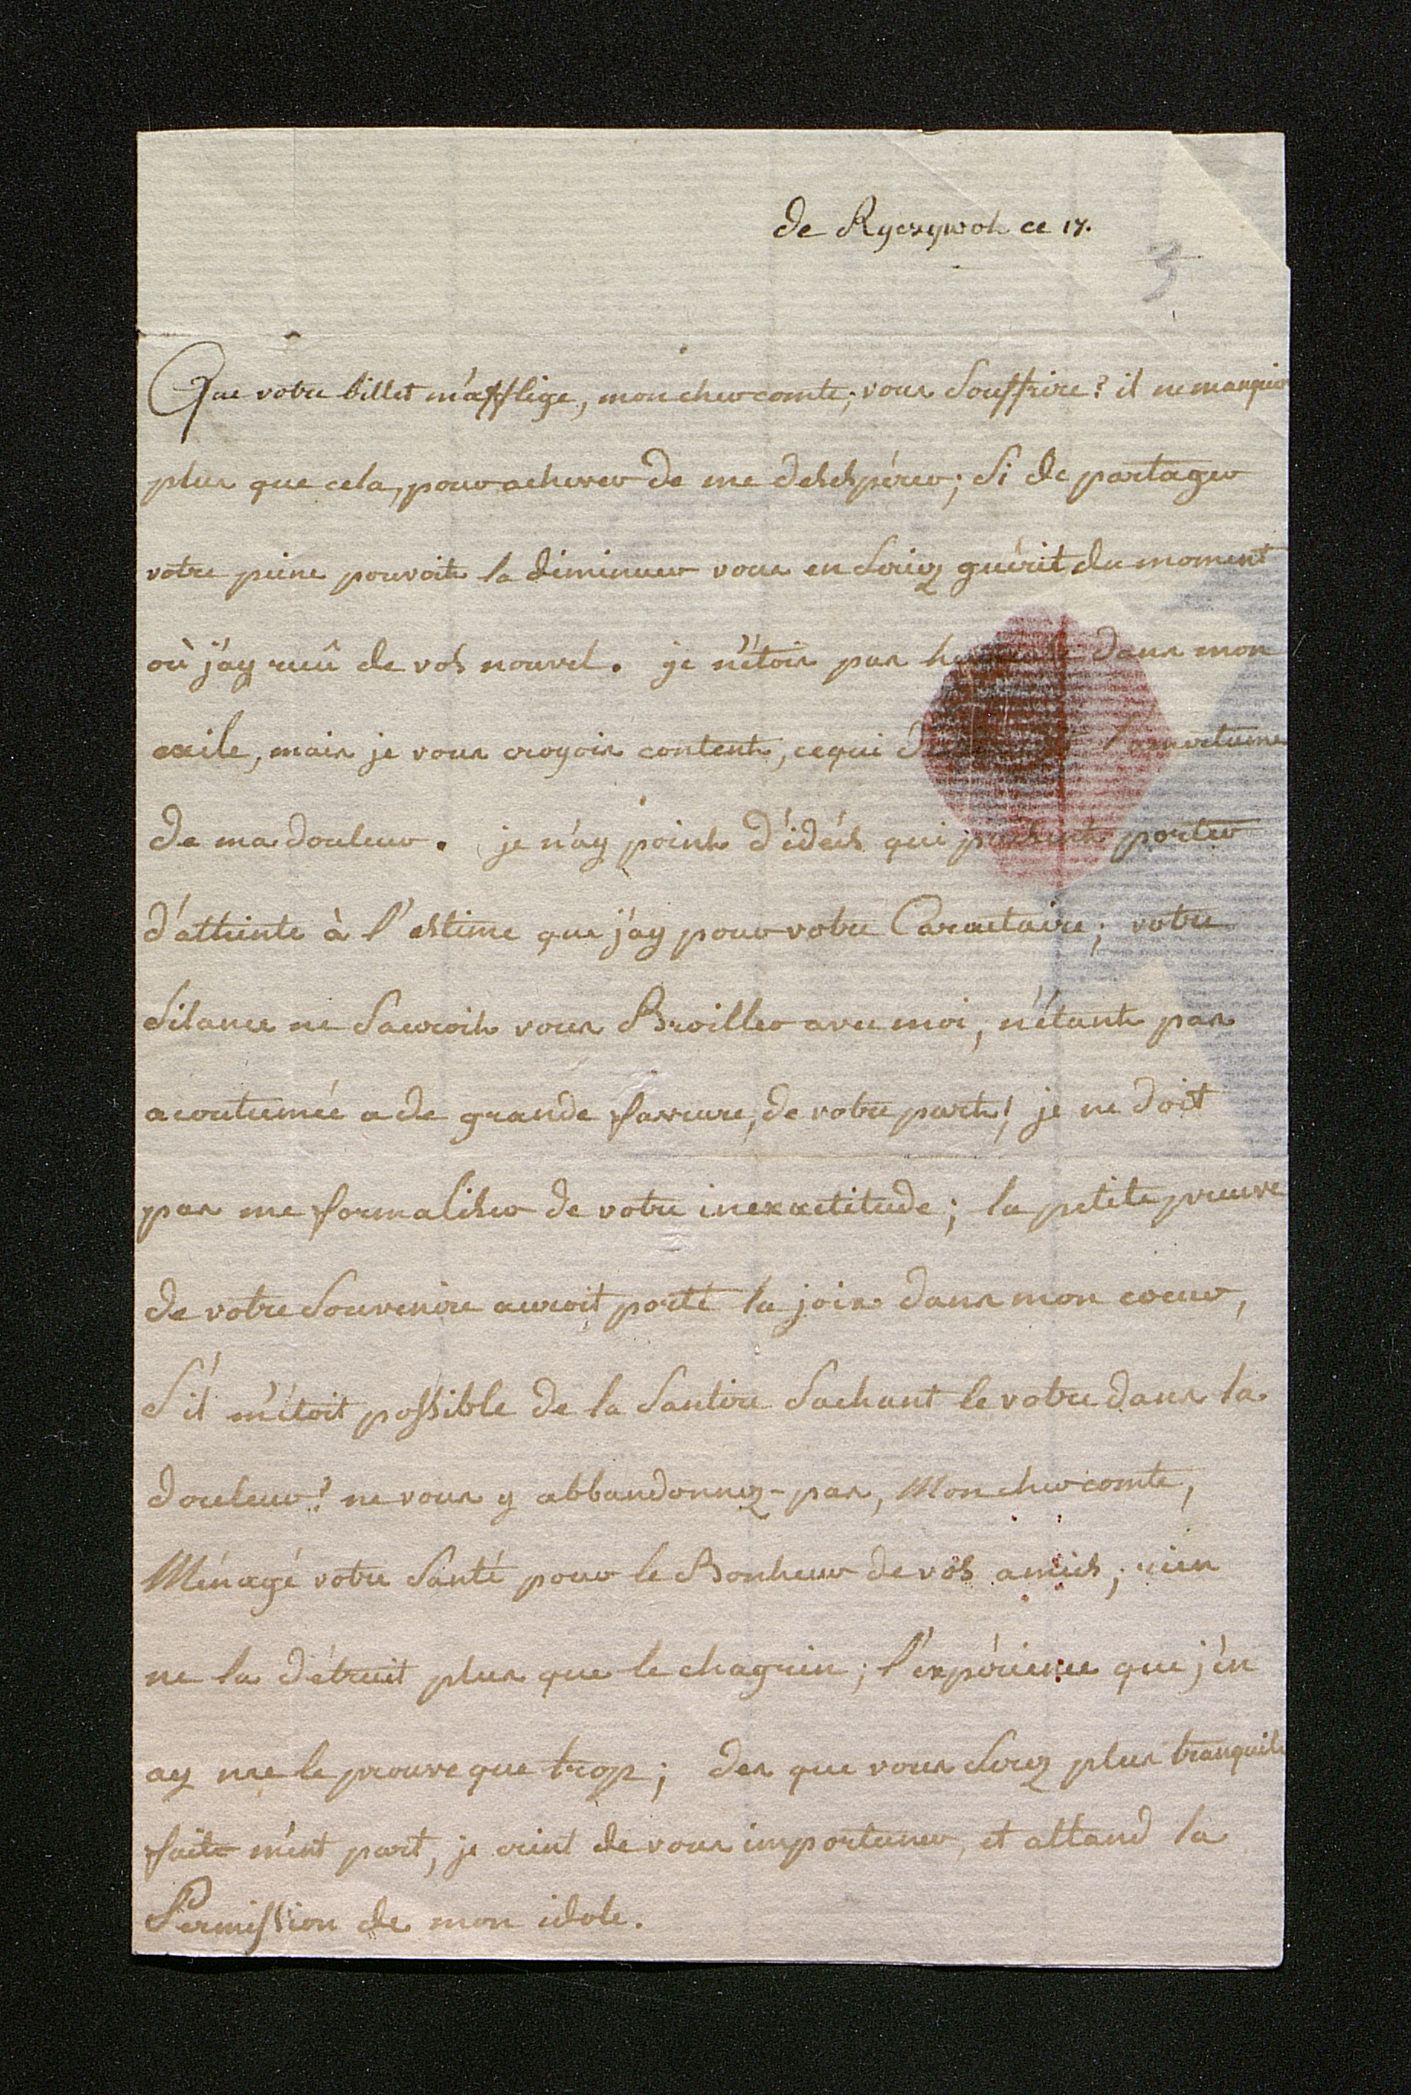 de Ryczywoli ce 17.
3
Que votre billet m'afflige, mon cher comte; vous souffrire? il ne manquit
plus que cela, pour achever de me deshpérer; si de partager
votre peine pouvoit la diminuer vous en seriez guérit du moment
où j'ay reeû de vos nouvel. je n'étois pas dans mon
exile, mais je vous croyois content, ce qui l'amertume
de ma douleur. je n'ay point d'idéés qui porter
d'atteinte à l'estime que j'ay pour votre Caractaire; votre
silance ne sauroit vous Broiller avec moi, n'étant pas
acoutumée a de grande faveure, de votre part! je ne doit
pas me formaliser de votre inexactitude; la petite preuve
de votre souvenire auroit porté la joix dans mon coeur,
S'il m'étoit possible de la santire sachant le votre dans la
douleur? ne vous y abbandonnez-pas, Mon cher comte,
Ménagé votre santé pour le Bonheur de vos amies, rien
ne la détruit plus que le chagrin; l'éxpérience que j'én
ay me le prouve que trop; des que vous serez plus tranquile
faite m'ent part, je crint de vous importuner, et attand la
Permission de mon idole.